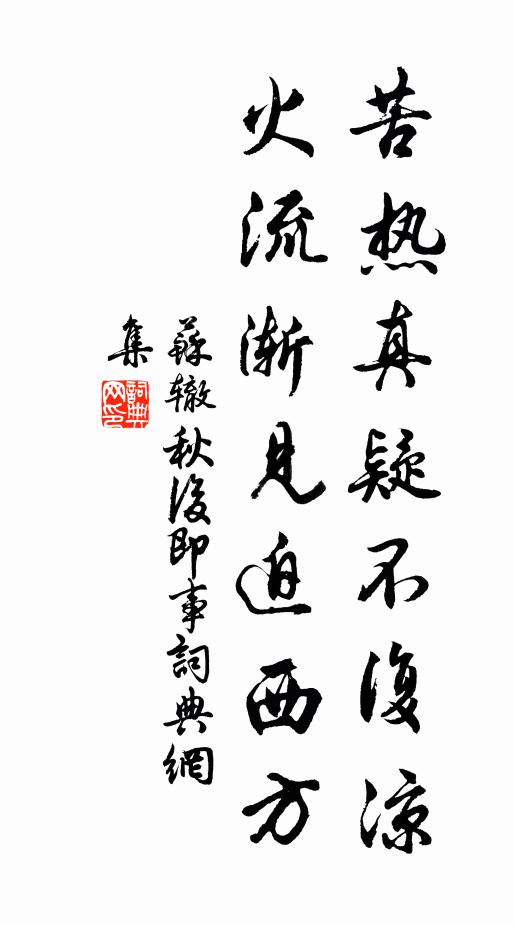 苦热真疑不復涼
火流渐見迫西方
蘇辙秋後即事詞典網
集
詞典網印